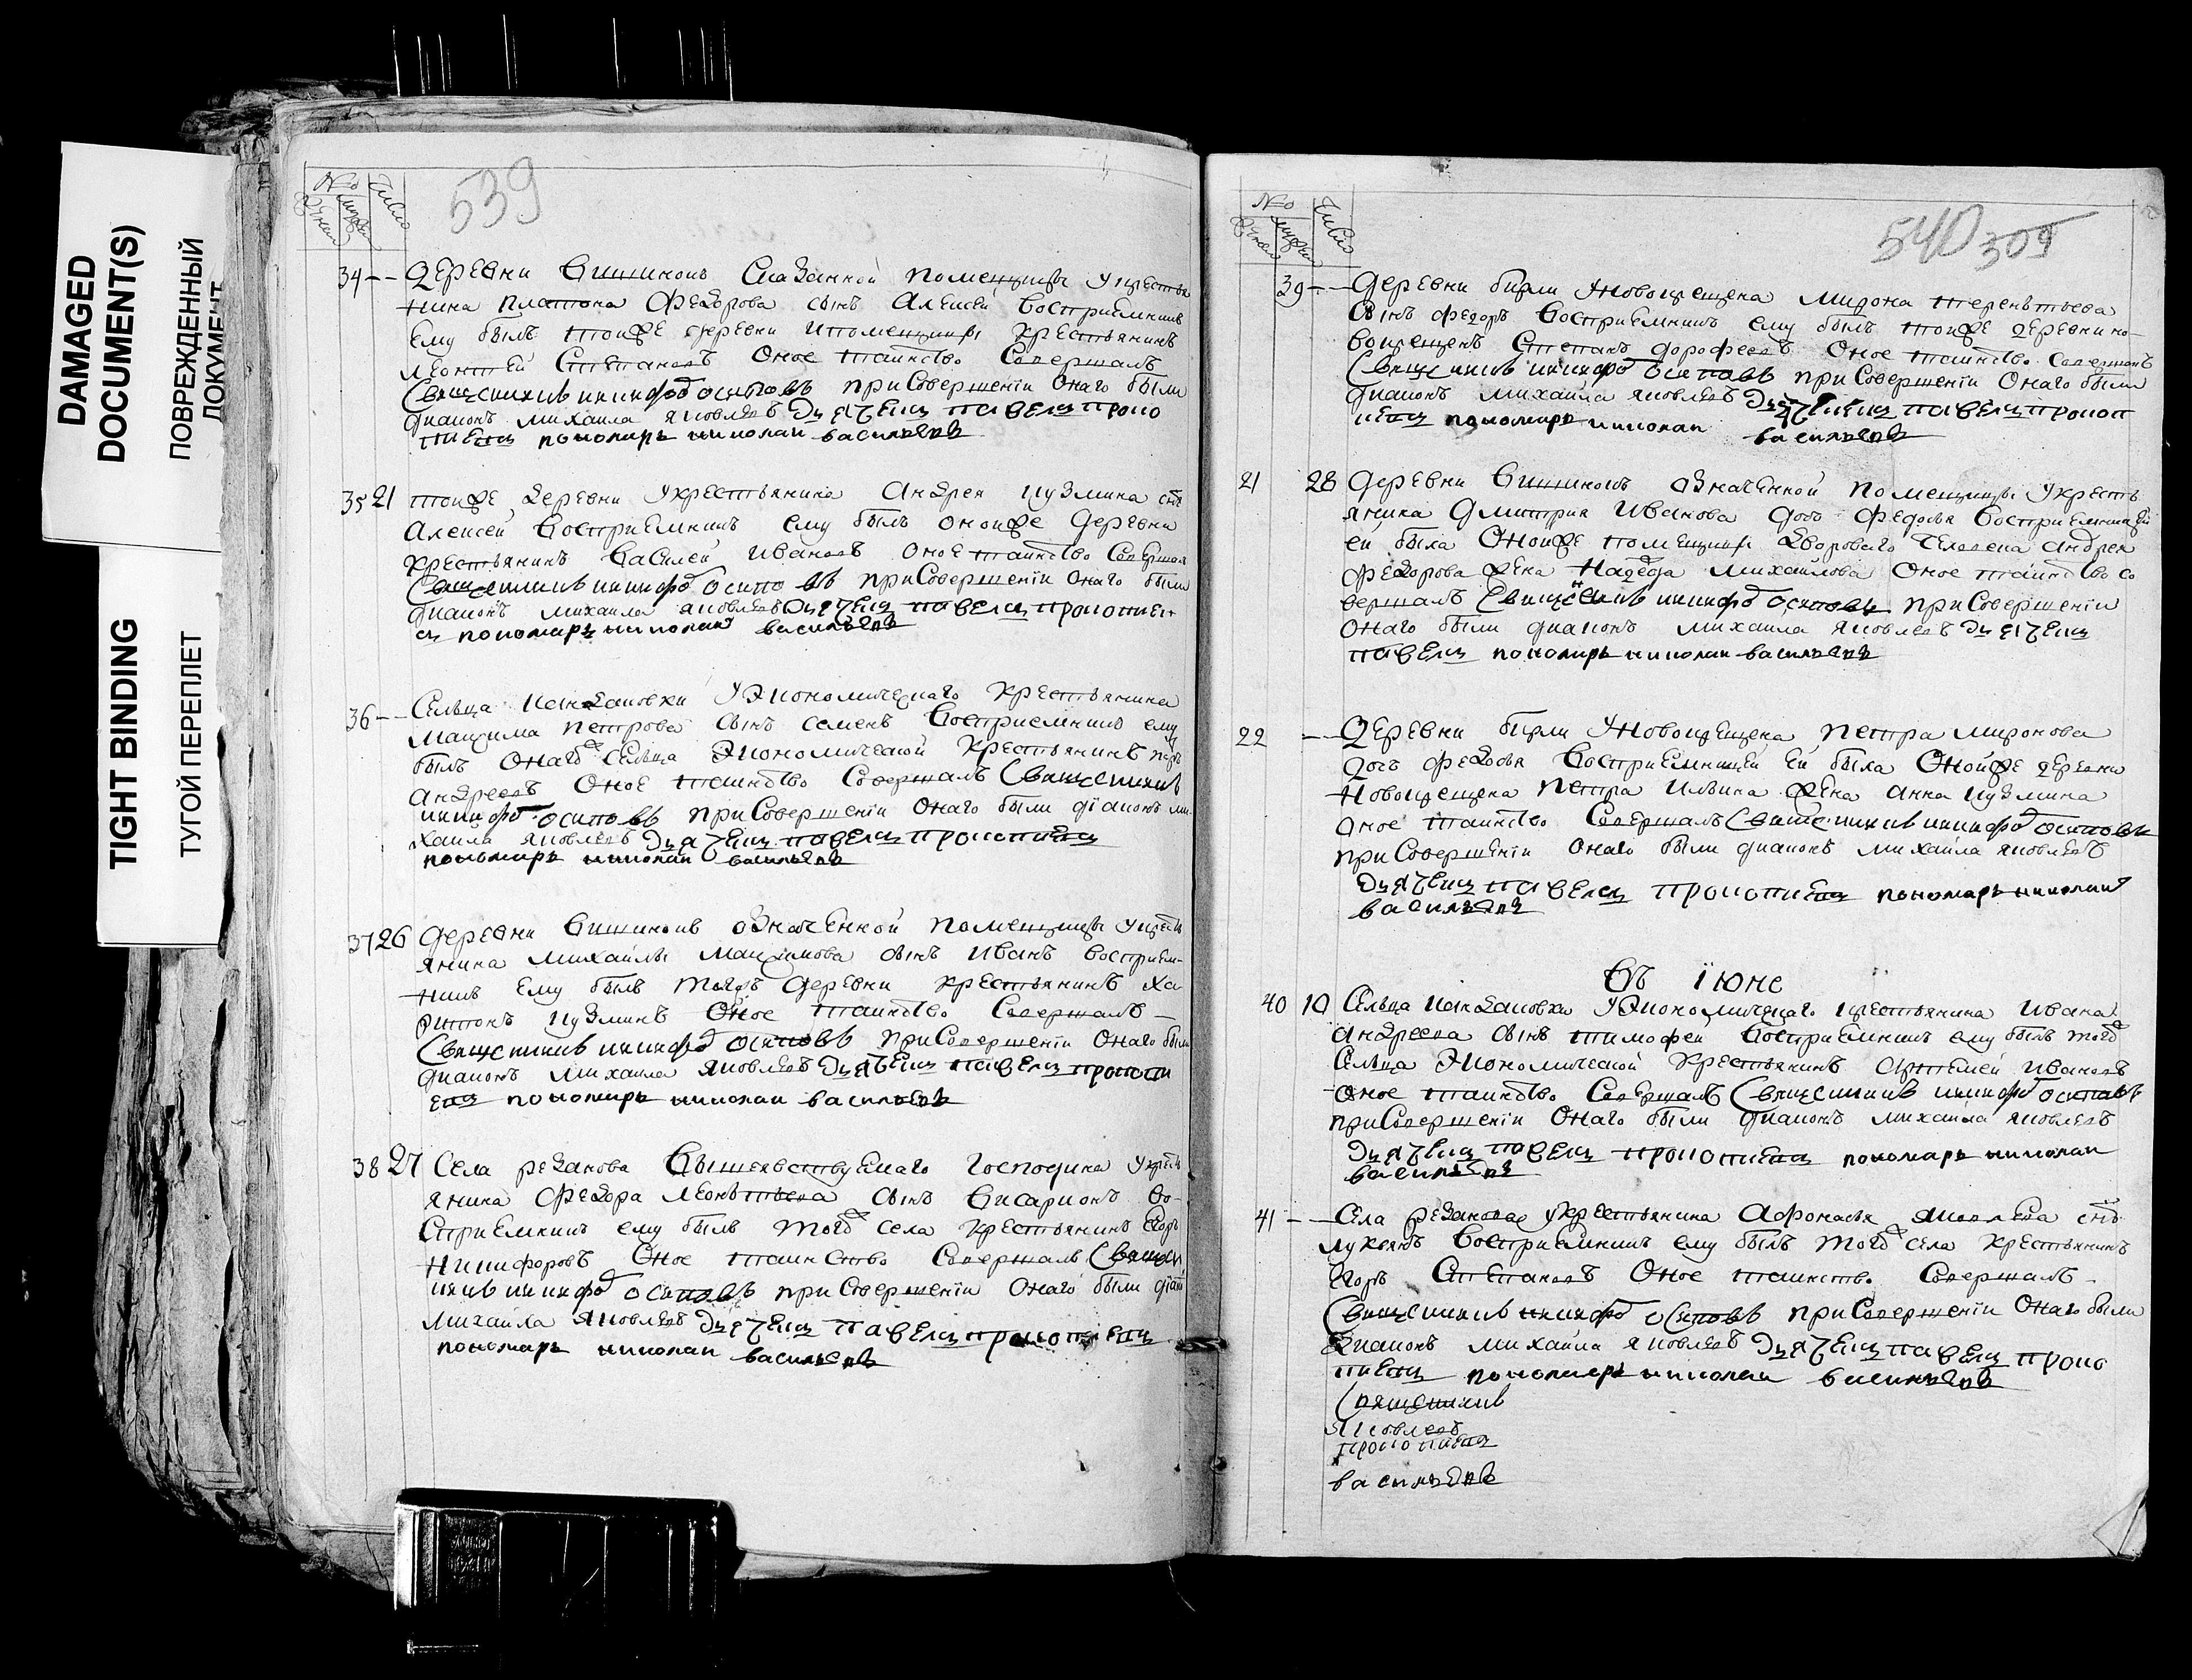 DAMAGED
DOCUMENT(S)
ПОВРЕЖДЕННЫЙ
ДОКУМЕНТ
TIGHT BINDING
ТУГОЙ ПЕРЕПЛЕТ
№
Число
539
34 -- деревни помещицы укрестья
нина платона федорова сынъ алексей восприемникъ
ему былъ тойже деревни ипомещицы крестьянинъ
леонтей степановъ оное таинство совершалъ
священникъ никифоръ осиповъ при совершенiи онаго были
диаконъ михаила яковлевъ дьячекъ павелъ проко
пиевъ пономарь николаи васильевъ
35 21 тойже деревни укрестьянина андрея кузмина снъ
алексей восприемникъ ему былъ оной же деревни
крестьянинъ василей ивановъ оное таинство совершал
священникъ никифоръ осиповъ при совершенiи онаго были
диаконъ михаила яковлевъ дьячекъ павелъ прокопиев
ъ пономарь николаи васильевъ
36 -- сельца уэкономическаго крестьянина
максима петрова сынъ семенъ восприемникъ ему
былъ онагожъ сельца экономической крестьянинъ петръ
андреевъ оное таинство совершалъ священникъ
никифоръ осиповъ при совершенiи онаго были дiаконъ ми
хаила яковлевъ дьячекъ павелъ прокопиевъ
пономарь николаи васильевъ
37 26 деревни означенной помещицы укресть
янина михайлы максимова сынъ иванъ восприем-
никъ ему былъ тойжъ деревни крестьянинъ ха
ритонъ кузминъ оное таинство совершалъ -
священникъ никифоръ осиповъ при совершенiи онаго были
диаконъ михаила яковлевъ дьячекъ павелъ прокопи
евъ пономарь николаи васильевъ
38 27 села резанова вышеявствуемаго господина укресть
янина федора леонтьева сынъ висарионъ во-
сприемникъ ему былъ тогожъ села крестьянинъ егоръ
никифоровъ оное таинство совершалъ священ
никъ никифоръ осиповъ при совершенiи онаго были дiакон
михаила яковлевъ дьячекъ павелъ прокопиевъ
пономарь николаи васильевъ
№
Число
540 309
39 -- деревни бирли уновокрещена мирона терентьева
сынъ федоръ восприемникъ ему былъ тойже деревни но-
вокрещенъ степанъ дорофеевъ оное таинство совершалъ
священникъ никифоръ осиповъ при совершенiи онаго были
диаконъ михаила яковлевъ дьячекъ павелъ прокоп
иевъ пономарь николаи васильевъ
21 28 деревни означенной помещицы укресть
янина дмитрия иванова дочь федосья восприемницей
ей была оной же помещицы двороваго человека андрея
федорова жена надежда михайлова оное таинство со
вершалъ священникъ никифоръ осиповъ при совершенiи
онаго были диаконъ михаила яковлевъ дьячекъ
павелъ пономарь николаи васильевъ
22 -- деревни бирли уновокрещена петра миронова
дочь федосья восприемницей ей была оной же деревни
новокрещена петра ильина жена анна кузмина
оное таинство совершалъ священникъ никифоръ осиповъ
при совершенiи онаго были диаконъ михаила яковлевъ
дьячекъ павелъ прокопиевъ пономарь николаи
васильевъ
въ iюне
40 10 сельца уэкономическаго крестьянина ивана
андреева сынъ тимофей восприемникъ ему былъ тогожъ
сельца экономической крестьянинъ артемей ивановъ
оное таинство совершалъ священникъ никифоръ осиповъ
при совершенiи онаго были диаконъ михаила яковлевъ
дьячекъ павелъ прокопиевъ пономарь николаи
васильевъ
41 -- села резанова укрестьянина афонасья яковлева снъ
лукьянъ восприемникъ ему былъ тогожъ села крестьянинъ
егоръ степановъ оное таинство совершалъ -
священникъ никифоръ осиповъ при совершенiи онаго были
диаконъ михаила яковлевъ дьячекъ павелъ проко
пиевъ пономарь николаи васильевъ
священникъ
яковлевъ
прокопиевъ
васильевъ